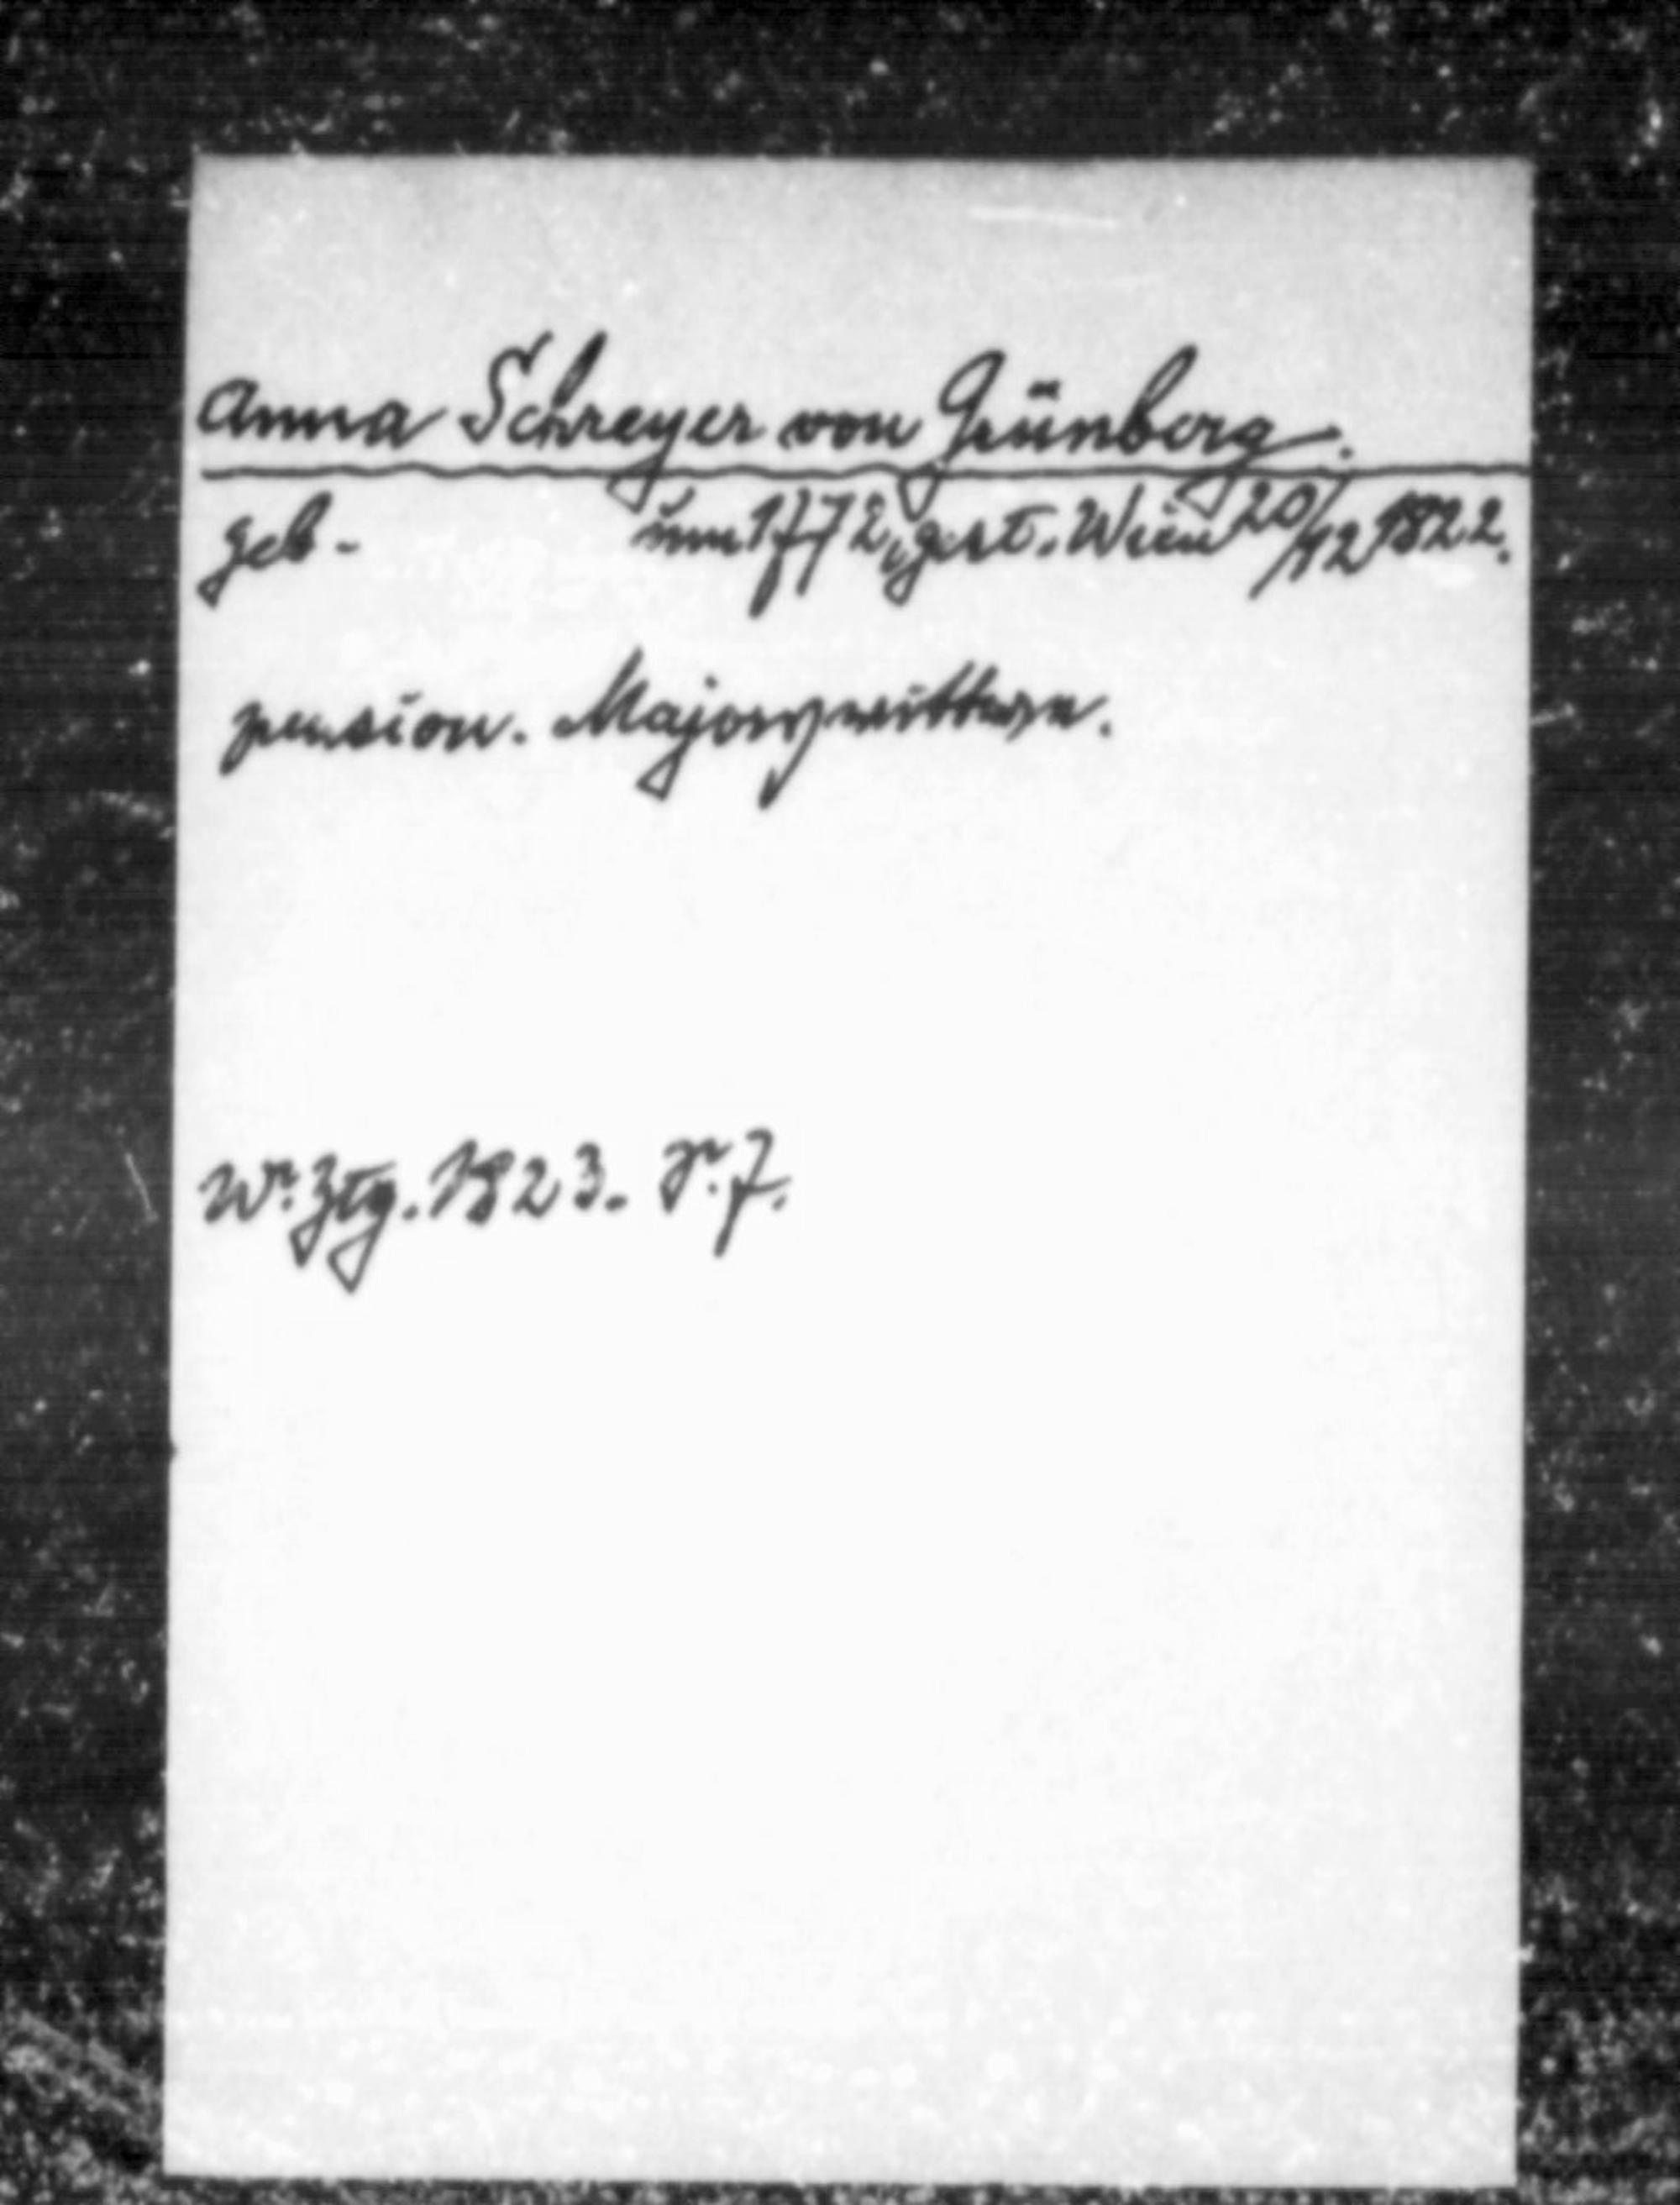 Anna Schreyer von Grünberg.
geb. um 1772, gest. Wien 20/12 1822.
pension. Majorswittwe.
Wr. Ztg. 1823. Nr. 7.